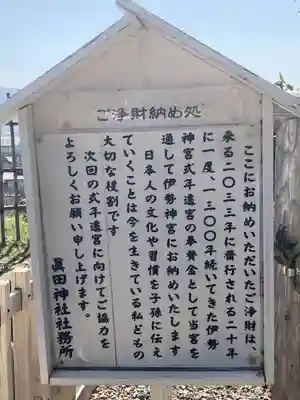 ご浄財納め処
ここにお納めいただいたご浄財は、
来る二〇三三年に斎行される二十年
に一度、一三〇〇年続いてきた伊勢
神宮式年遷宮の奉賛金として当宮を
通して伊勢神宮にお納めいたします
日本人の文化や習慣を子孫に伝え
ていくことは今を生きている私どもの
大切な役割です
次回の式年遷宮に向けてご協力を
よろしくお願い申し上げます。
眞田神社社務所